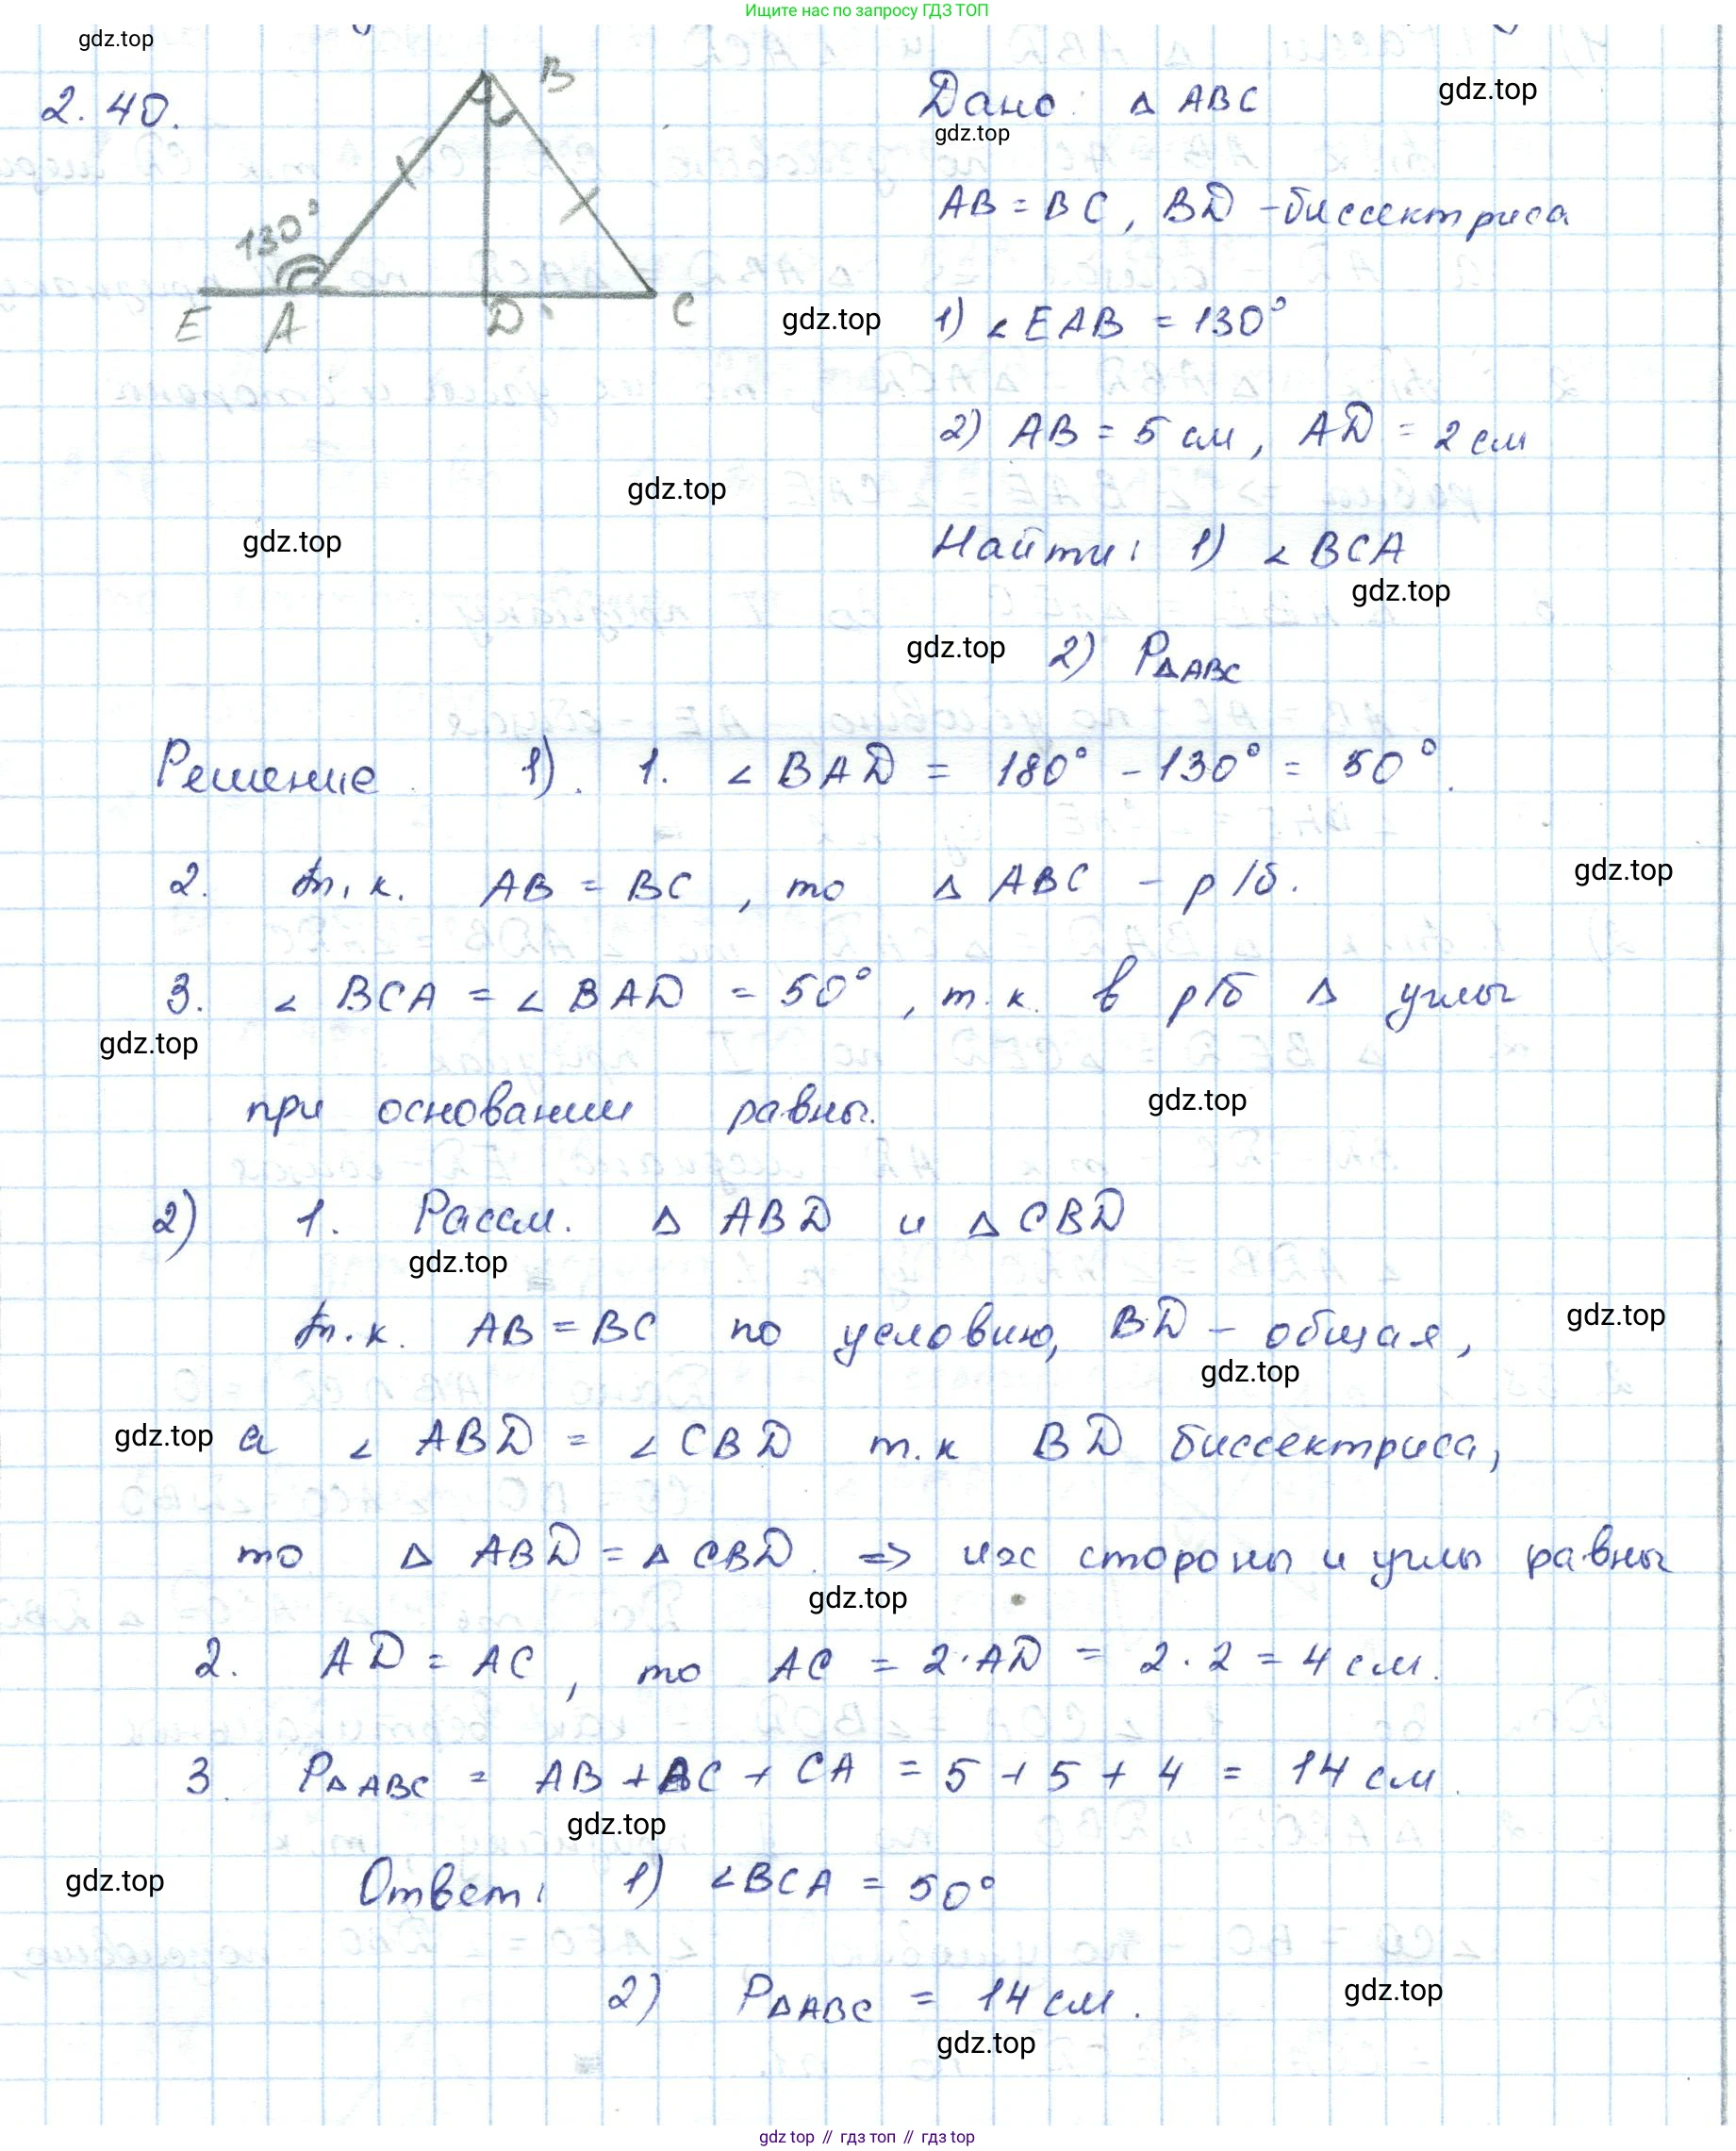 Ищите нас по запросу ГДЗ ТОП
gdz.top
2.40.
B
130°
E A D C
Дано: Δ ABC
gdz.top
gdz.top
AB = BC, BD - биссектриса
gdz.top
1) ∠EAB = 130°
2) AB = 5 см, AD = 2 см
gdz.top
gdz.top
Найти: 1) ∠BCA
gdz.top
gdz.top
2) PΔABC
Решение 1). 1. ∠BAD = 180° - 130° = 50°.
2. т.к. AB = BC, то Δ ABC - р/б.
gdz.top
3. ∠BCA = ∠BAD = 50°, т.к. в р/б Δ углы
gdz.top
при основании равны.
gdz.top
2) 1. Рассм. Δ ABD и Δ CBD
gdz.top
т.к. AB = BC по условию, BD - общая,
gdz.top
gdz.top
gdz.top
а ∠ABD = ∠CBD т.к BD биссектриса,
то Δ ABD = Δ CBD. => их стороны и углы равны
gdz.top
2. AD = AC, то AC = 2·AD = 2·2 = 4 см.
3. PΔABC = AB + BC + CA = 5 + 5 + 4 = 14 см.
gdz.top
gdz.top
Ответ: 1) ∠BCA = 50°
2) PΔABC = 14 см.
gdz.top
gdz.top
gdz top // гдз топ // гдз top